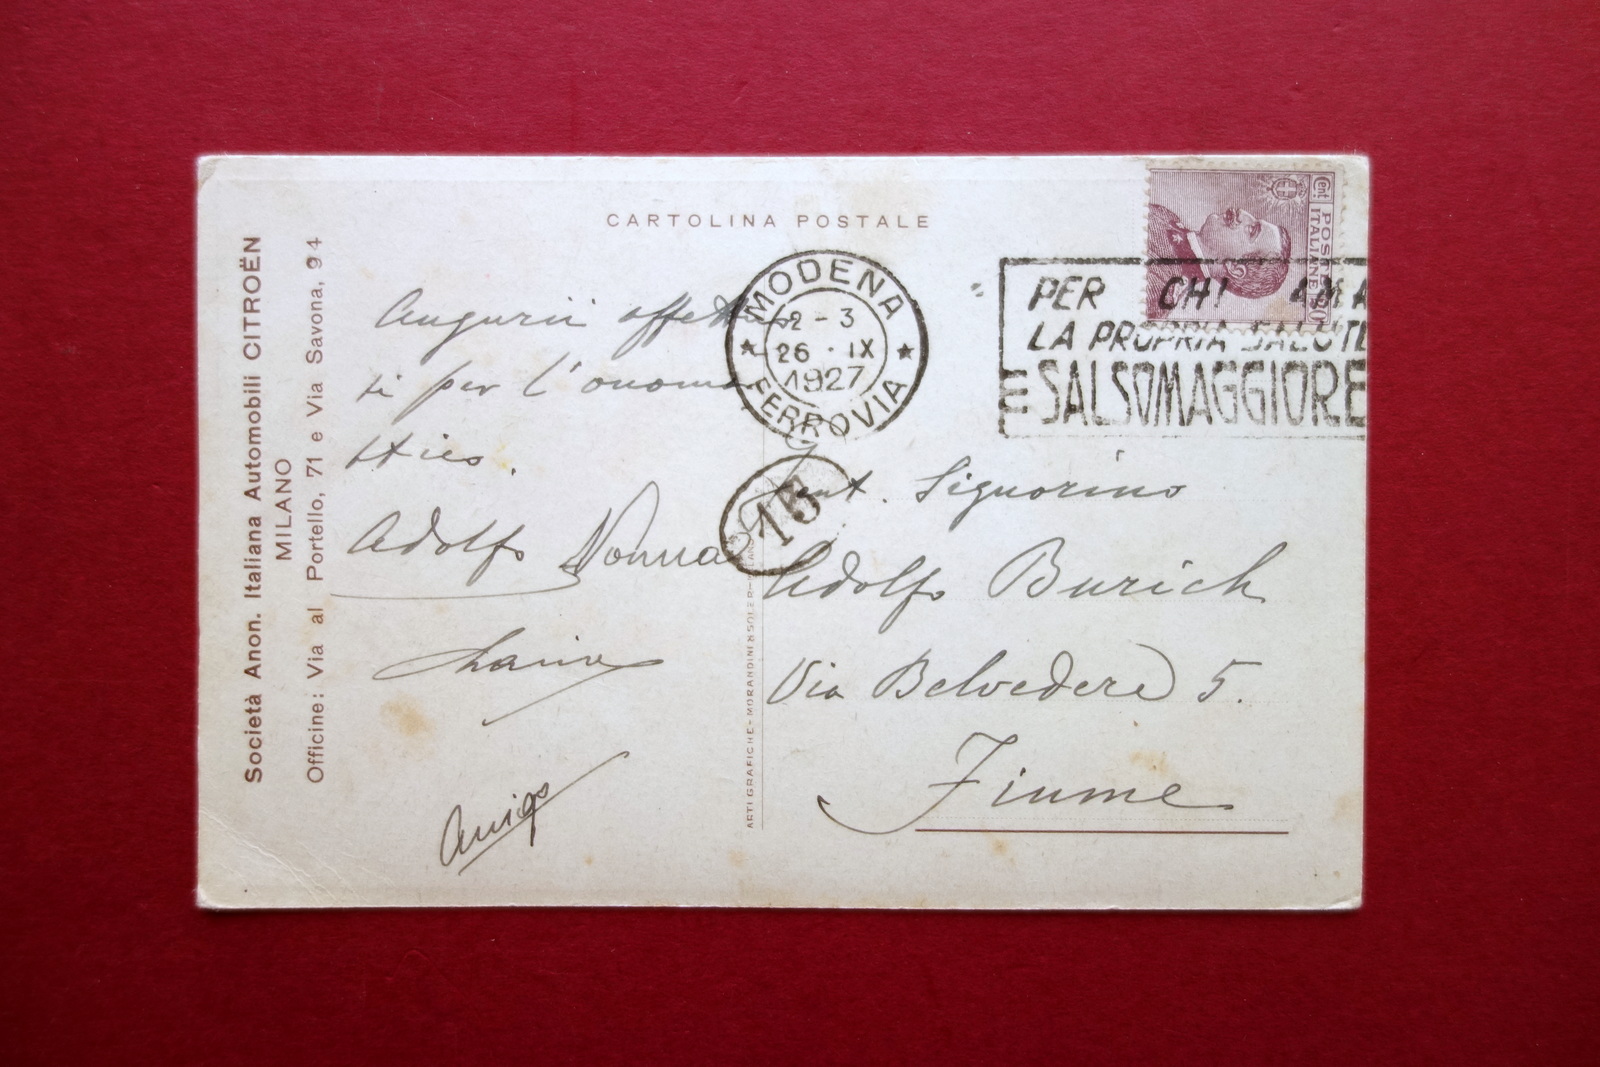 CARTOLINA POSTALE
Società Anon. Italiana Automobili CITROËN
MILANO
Officine: Via al Portello, 71 e Via Savona, 94
POSTE
ITALIANE
Cent
MODENA
2-3
26 · IX
1927
FERROVIA
PER CHI AMA
LA PROPRIA SALUTE
SALSOMAGGIORE
15
Augurii affettuo
si per l'onoma
stico.
Adolfo Nonna
Gent. Signorino
Adolfo Burich
Via Belvedere 5.
Fiume
ARTI GRAFICHE - MORANDINI & SOLER - MILANO